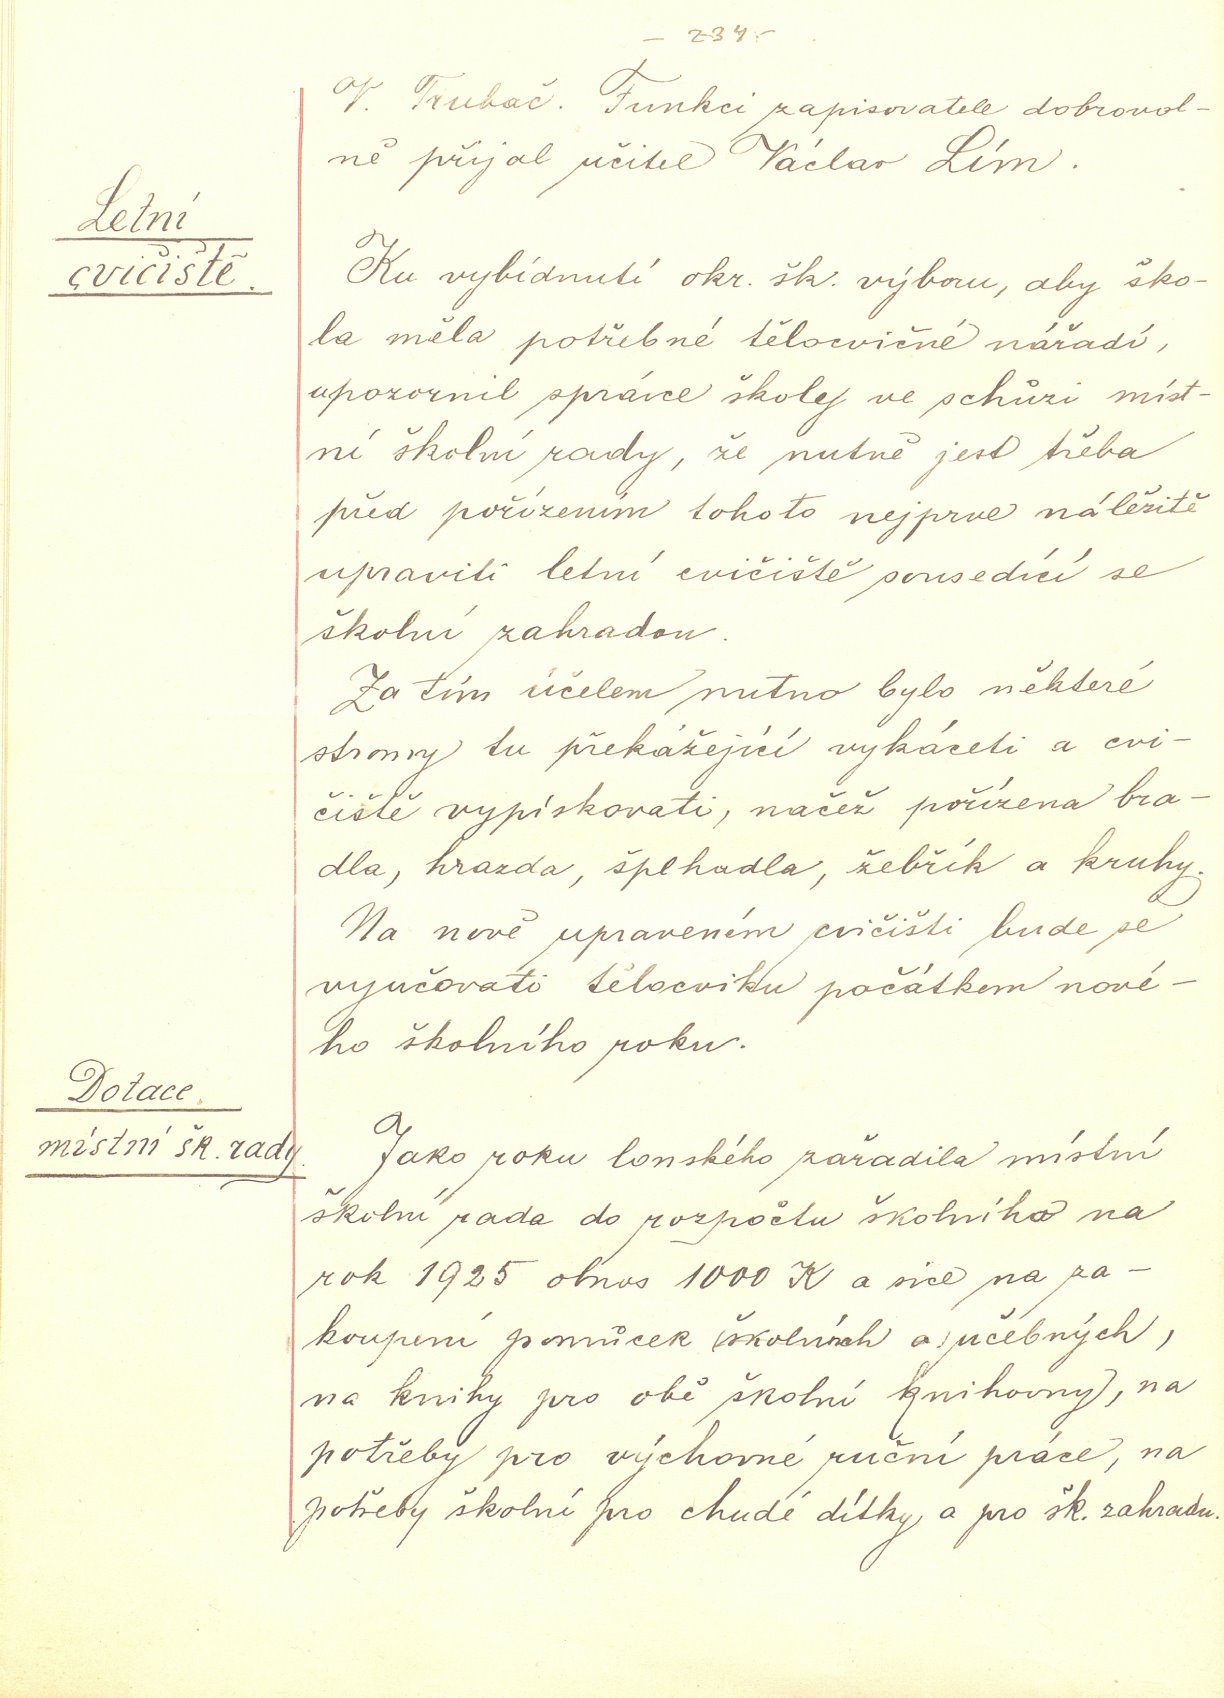 - 234 -
V. Trubač. Funkci zapisovatele dobrovol-
ně přijal učitel Václav Lím.
Letní
cvičiště.
Ku vybídnutí okr. šk. výboru, aby ško-
la měla potřebné tělocvičné nářadí,
upozornil správce školy ve schůzi míst-
ní školní rady, že nutně jest třeba
před pořízením tohoto nejprve náležitě
upraviti letní cvičiště sousedící se
školní zahradou.
Za tím účelem nutno bylo některé
stromy tu překážející vykáceti a cvi-
čiště vypískovati, načež pořízena bra-
dla, hrazda, šplhadla, žebřík a kruhy.
Na nově upraveném cvičišti bude se
vyučovati tělocviku počátkem nové-
ho školního roku.
Dotace
místní šk. rady.
Jako roku lonského zařadila místní
školní rada do rozpočtu školního na
rok 1925 obnos 1000 K a sice na za-
koupení pomůcek (školních a) učebných,
na knihy pro obě školní knihovny, na
potřeby pro výchovné ruční práce, na
potřeby školní pro chudé dítky a pro šk. zahradu.